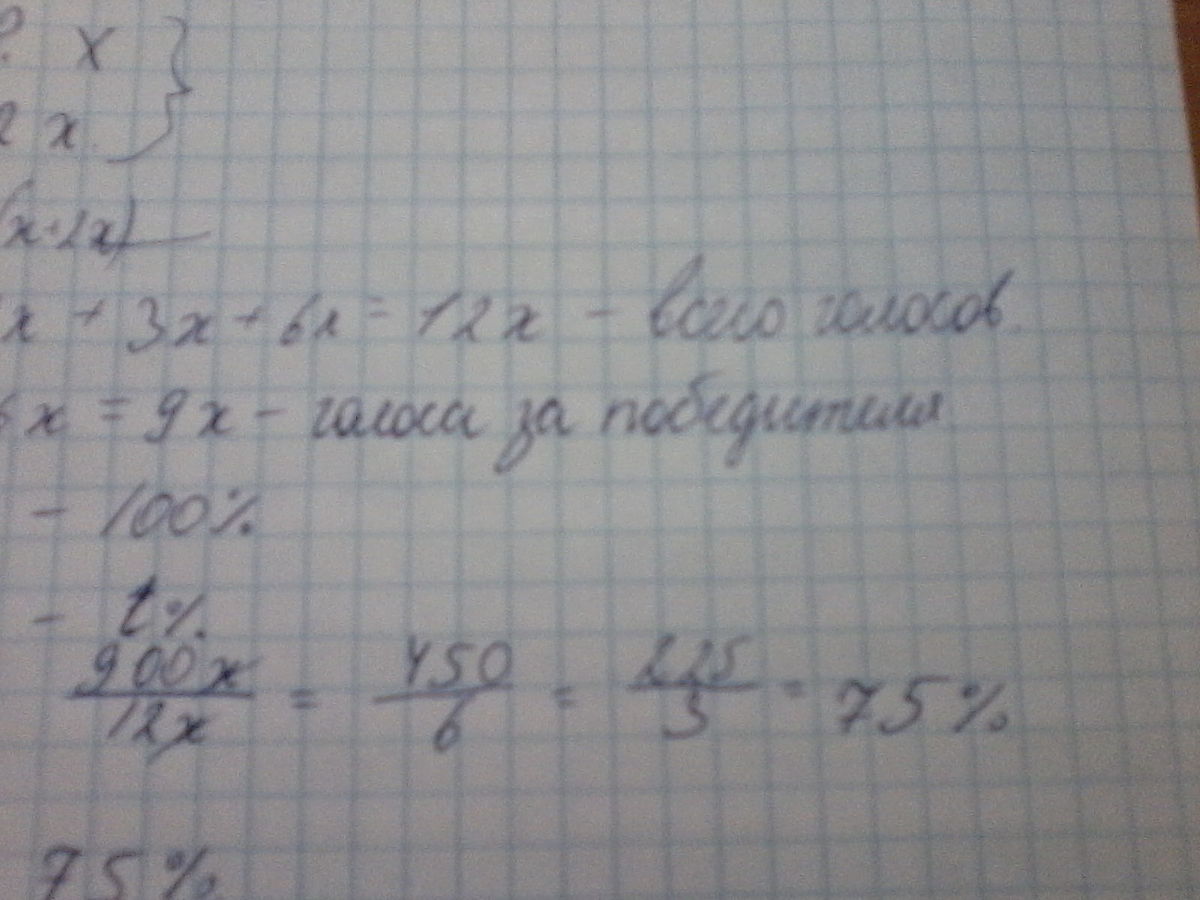 ? x
2x
(x+2x)
x + 3x + 6x = 12x - всего голосов.
6x = 9x - голоса за победителя
- 100%
- t%
900x/12x = 450/6 = 225/3 = 75%
75%